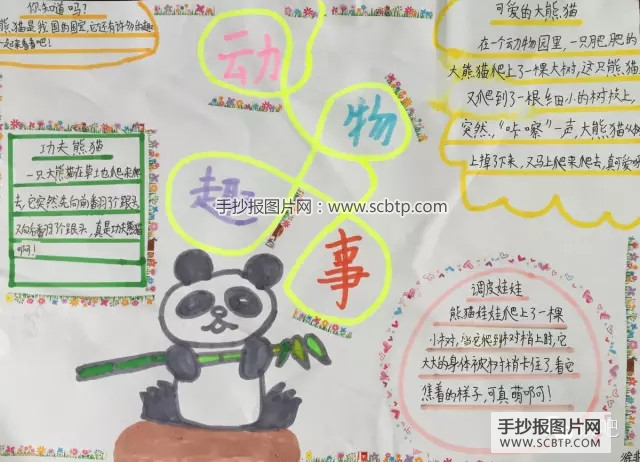 你知道吗？
熊猫是我国的国宝，它还有许多的趣
一起来看看吧！
动
物
趣
事
可爱的大熊猫
在一个动物园里，一只肥肥的
大熊猫爬上了一棵大树，这只熊猫
又爬到了一根细小的树枝上，
突然，“咔嚓”一声，大熊猫从
上掉了下来，又马上爬来爬去，真可爱呀
功夫熊猫
一只大熊猫在草地爬来爬
去，它突然先向前翻了个跟头
又向右翻了个跟头，真是功夫熊猫
啊！
手抄报图片网：www.scbtp.com
调皮娃娃
熊猫娃娃爬上了一棵
小树，当它爬到树梢上时，它
大大的身体被树梢卡住了，看它
焦着的样子，可真萌啊！
手抄报图片网
WWW.SCBTP.COM
吧